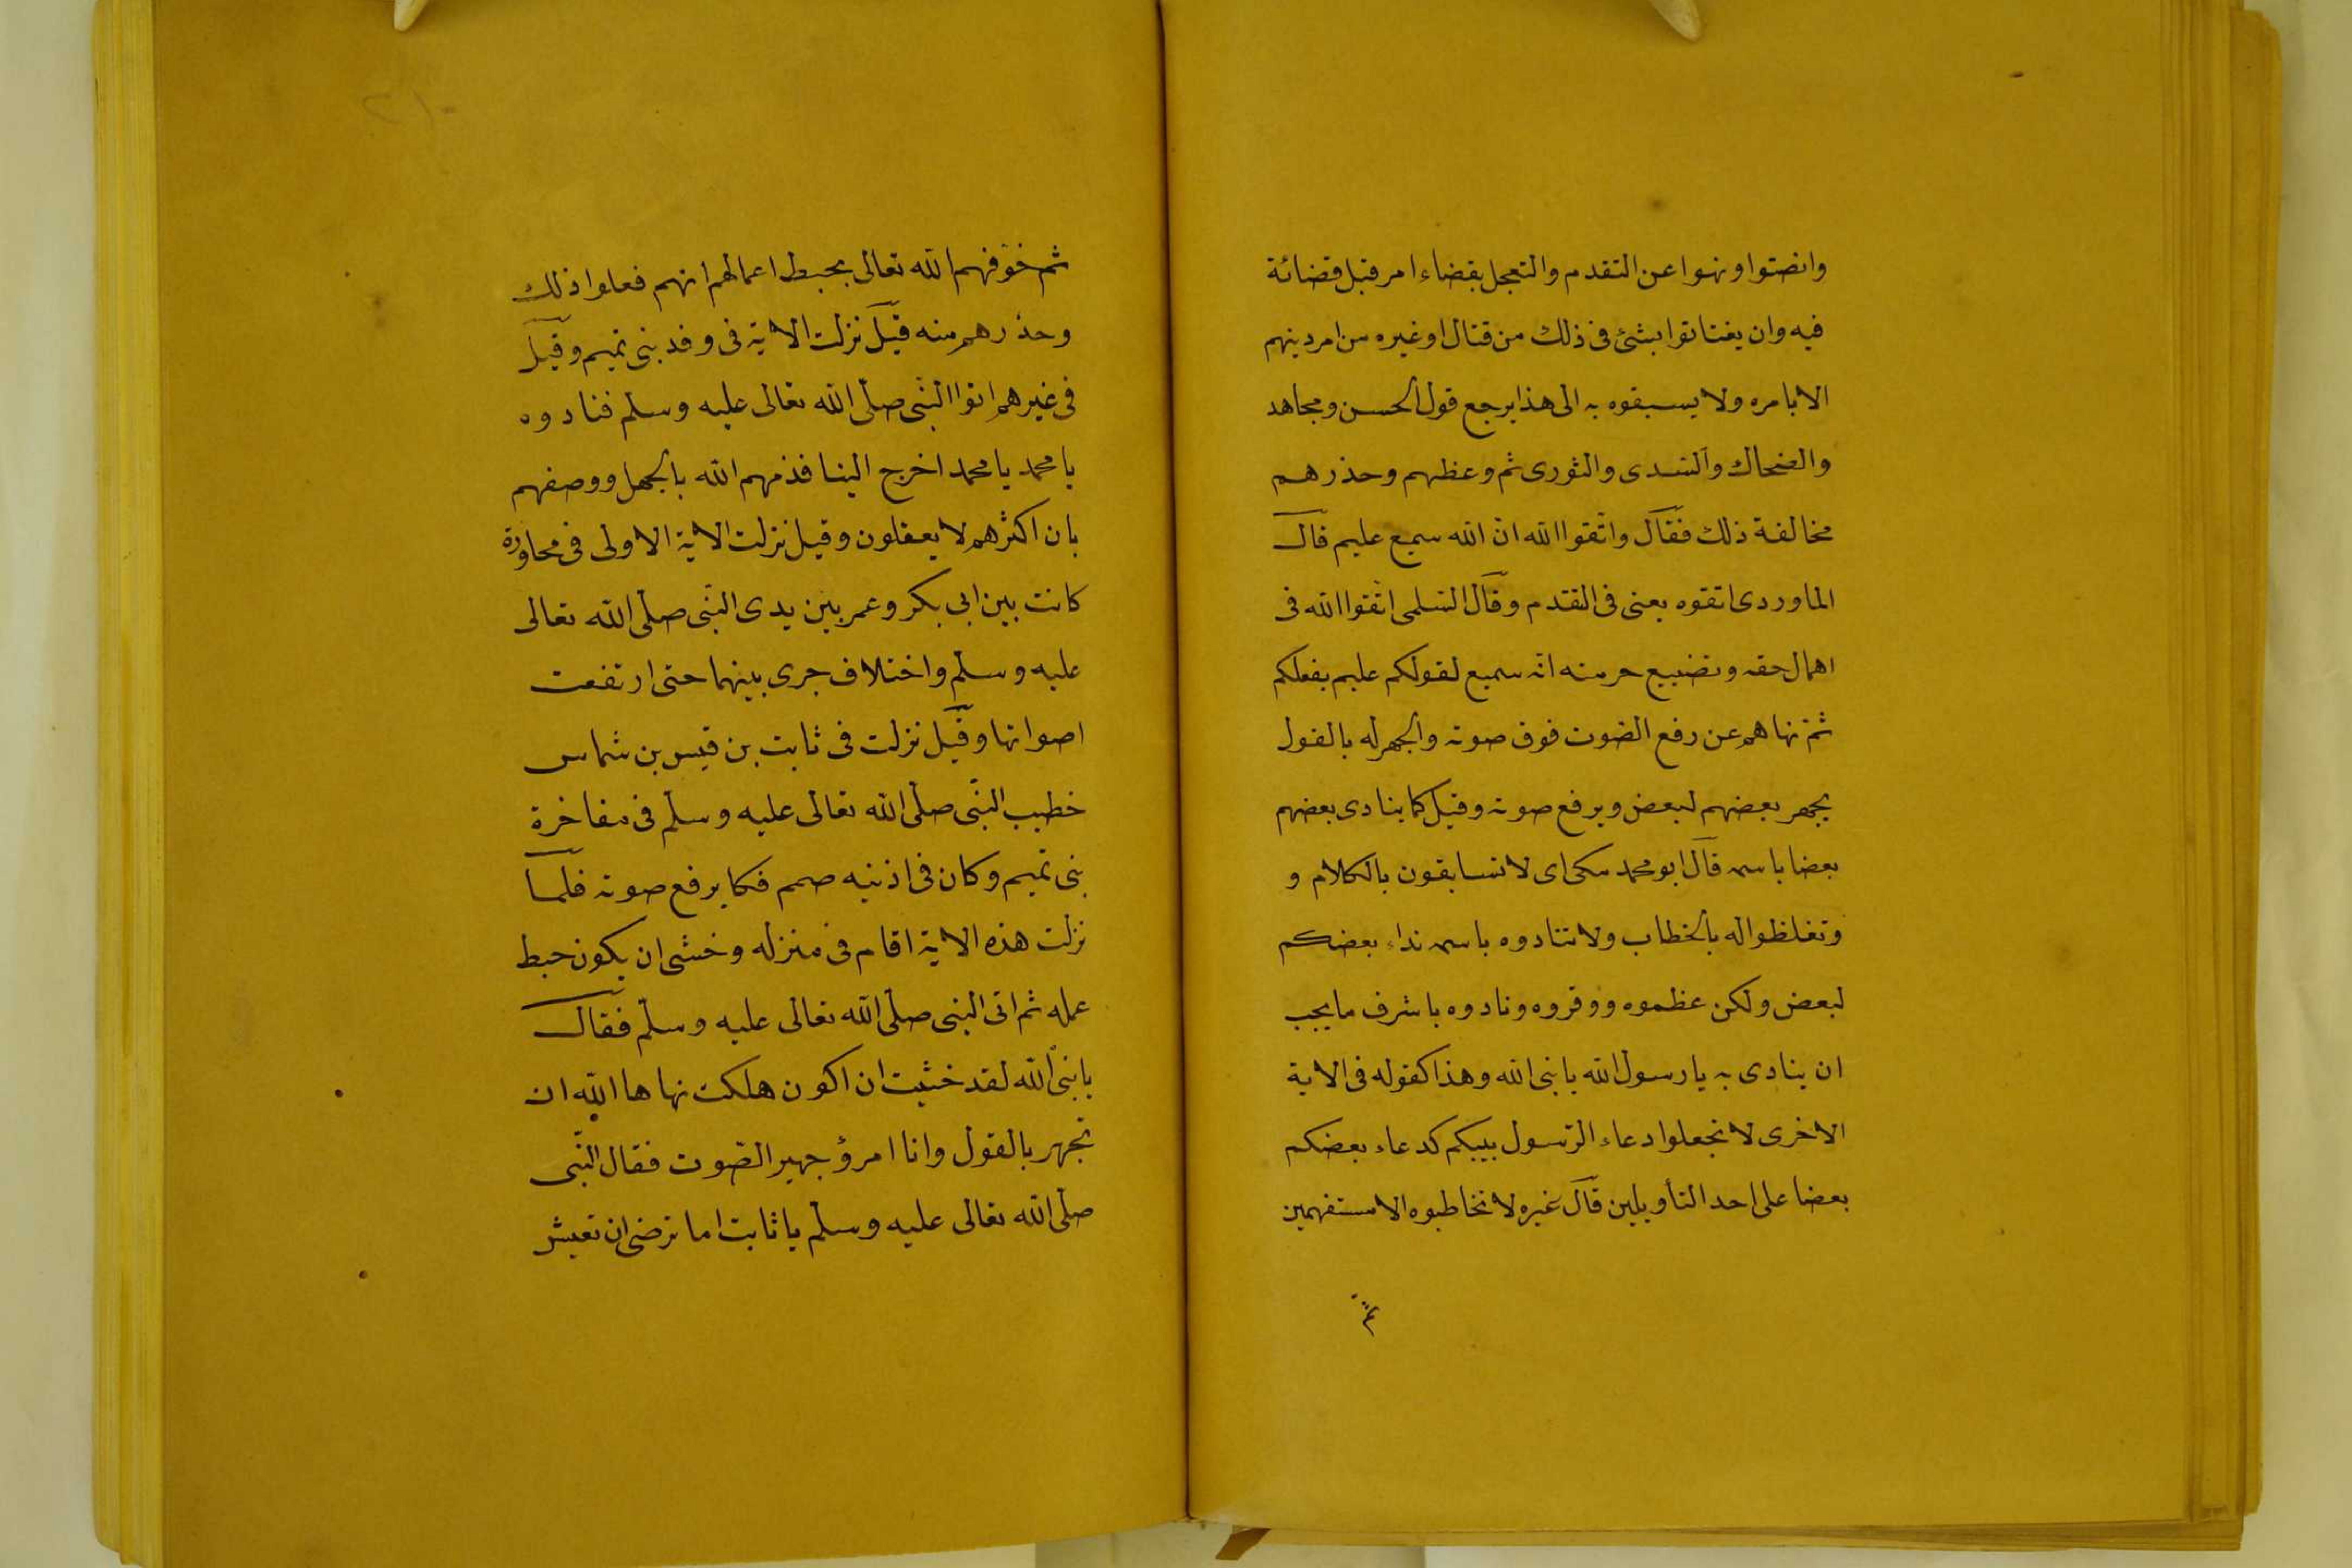 وانصتوا ونهوا عن التقدم والتعجل بقضاء امر قبل قضائة
فيه وان يفتاتوا بشئ فى ذلك من قتال او غيره من امر دينهم
الا بامره ولا يسبقوه به الى هذا يرجع قول الحسن ومجاهد
والضحاك والسّدى والثورى ثم وعظهم وحذرهم
مخالفة ذلك فقال واتّقوا الله انّ الله سميع عليم قال
الماوردى اتقوه يعنى فى التقدّم وقال السّلمى اتّقوا الله فى
اهمال حقه وتضييع حرمته انّه سميع لقولكم عليم بفعلكم
ثمّ نهاهم عن رفع الصّوت فوق صوته والجهر له بالقول
يجهر بعضهم لبعض ويرفع صوته وقيل كما ينادى بعضهم
بعضا باسمه قال ابو محمد مكى اى لا تسابقون بالكلام و
وتغلظوا له بالخطاب ولا تنادوه باسمه نداء بعضكم
لبعض ولكن عظموه ووقروه ونادوه باشرف ما يجب
ان ينادى به يا رسول الله يا نبى الله وهذا كقوله فى الاية
الاخرى لا تجعلوا دعاء الرّسول بينكم كدعاء بعضكم
بعضا على احد التأويلين قال غيره لا تخاطبوه الا مستفهمين
ثمّ
ثم خوّفهم الله تعالى بحبط اعمالهم انهم فعلوا ذلك
وحذرهم منه قيل نزلت الاية فى وفد بنى تميم وقيل
فى غيرهم اتوا النّبى صلّى الله تعالى عليه وسلم فنادوه
يا محمد يا محمد اخرج الينا فذمهم الله بالجهل ووصفهم
بان اكثرهم لا يعقلون وقيل نزلت الاية الاولى فى محاورة
كانت بين ابى بكر وعمر بين يدى النّبى صلّى الله تعالى
عليه وسلم واختلاف جرى بينهما حتى ارتفعت
اصواتها وقيل نزلت فى ثابت بن قيس بن شماس
خطيب النّبى صلّى الله تعالى عليه وسلّم فى مفاخرة
بنى تميم وكان فى اذنيه صمم فكا يرفع صوته فلما
نزلت هذه الاية اقام فى منزله وخشى ان يكون حبط
عمله ثم اتى النبى صلّى الله تعالى عليه وسلّم فقال
يا نبى الله لقد خشيت ان اكون هلكت نهاها الله ان
تجهر بالقول وانا امرؤ جهير الصّوت فقال النّبى
صلّى الله تعالى عليه وسلّم يا ثابت اما ترضى ان تعيش